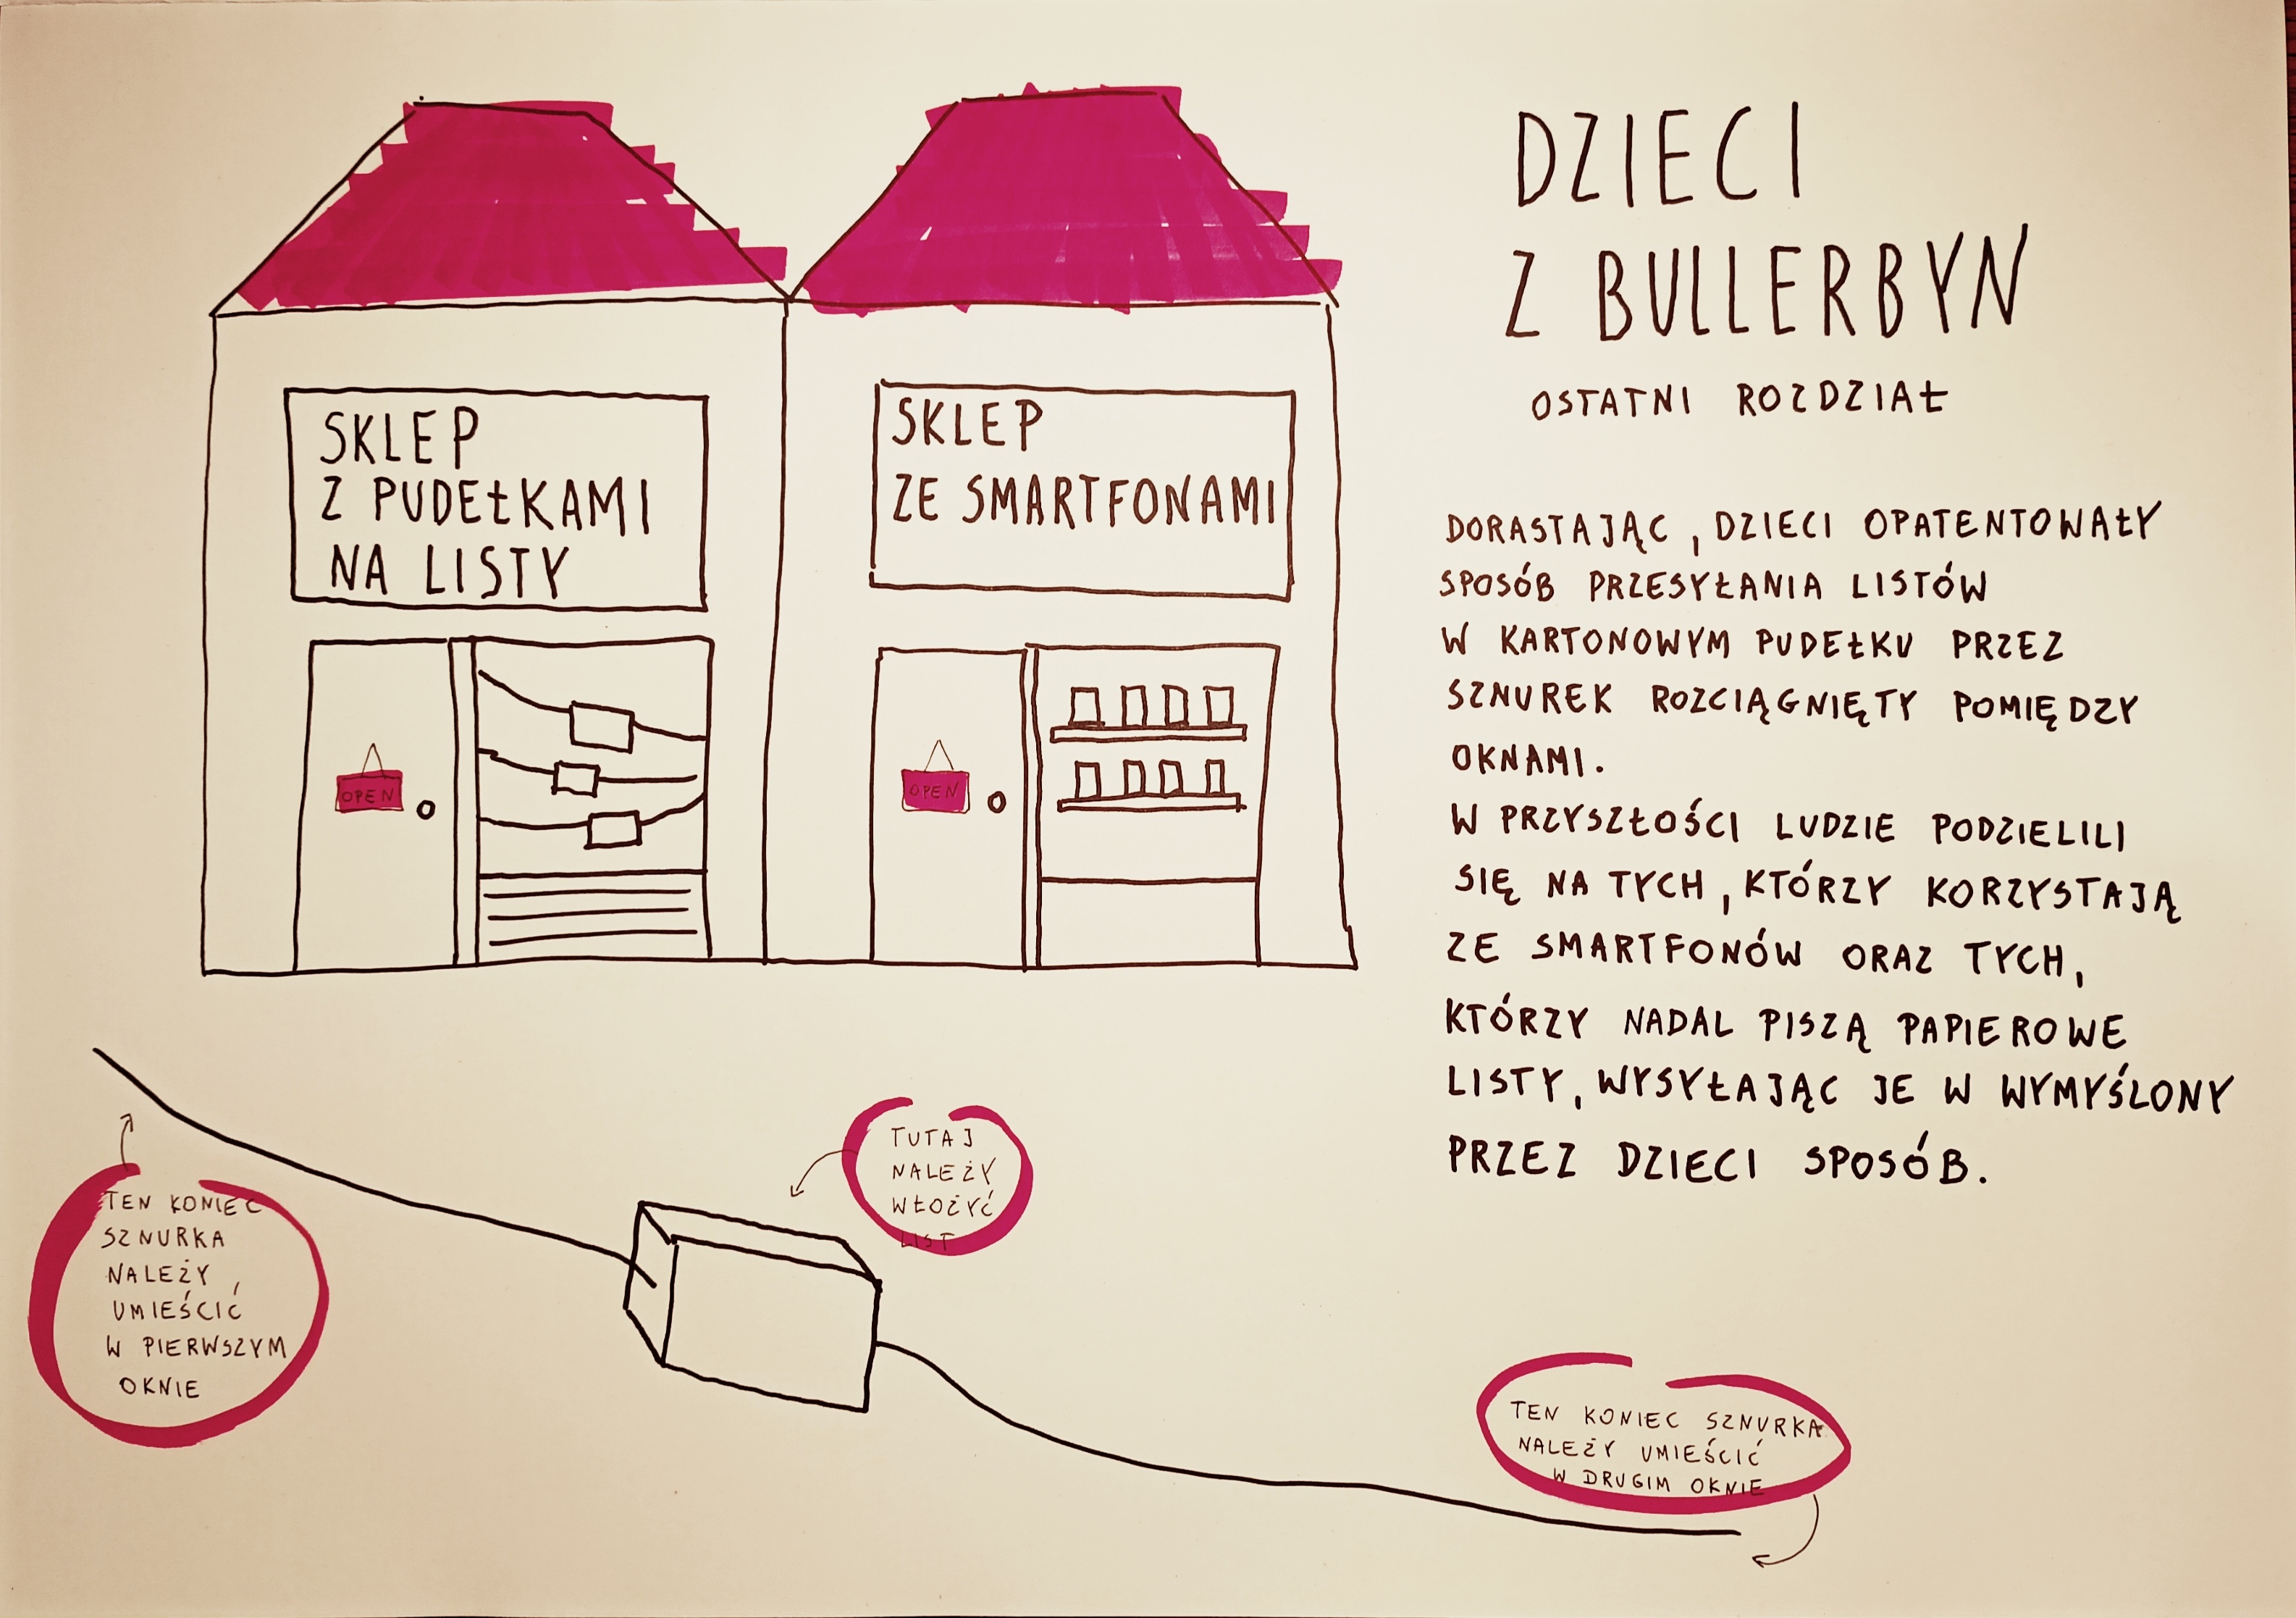 DZIECI
Z BULLERBYN
OSTATNI ROZDZIAŁ
SKLEP
Z PUDEŁKAMI
NA LISTY
SKLEP
ZE SMARTFONAMI
OPEN
OPEN
DORASTAJĄC, DZIECI OPATENTOWAŁY
SPOSÓB PRZESYŁANIA LISTÓW
W KARTONOWYM PUDEŁKU PRZEZ
SZNUREK ROZCIĄGNIĘTY POMIĘDZY
OKNAMI.
W PRZYSZŁOŚCI LUDZIE PODZIELILI
SIĘ NA TYCH, KTÓRZY KORZYSTAJĄ
ZE SMARTFONÓW ORAZ TYCH,
KTÓRZY NADAL PISZĄ PAPIEROWE
LISTY, WYSYŁAJĄC JE W WYMYŚLONY
PRZEZ DZIECI SPOSÓB.
TEN KONIEC
SZNURKA
NALEŻY
UMIEŚCIĆ
W PIERWSZYM
OKNIE
TUTAJ
NALEŻY
WŁOŻYĆ
LIST
TEN KONIEC SZNURKA
NALEŻY UMIEŚCIĆ
W DRUGIM OKNIE